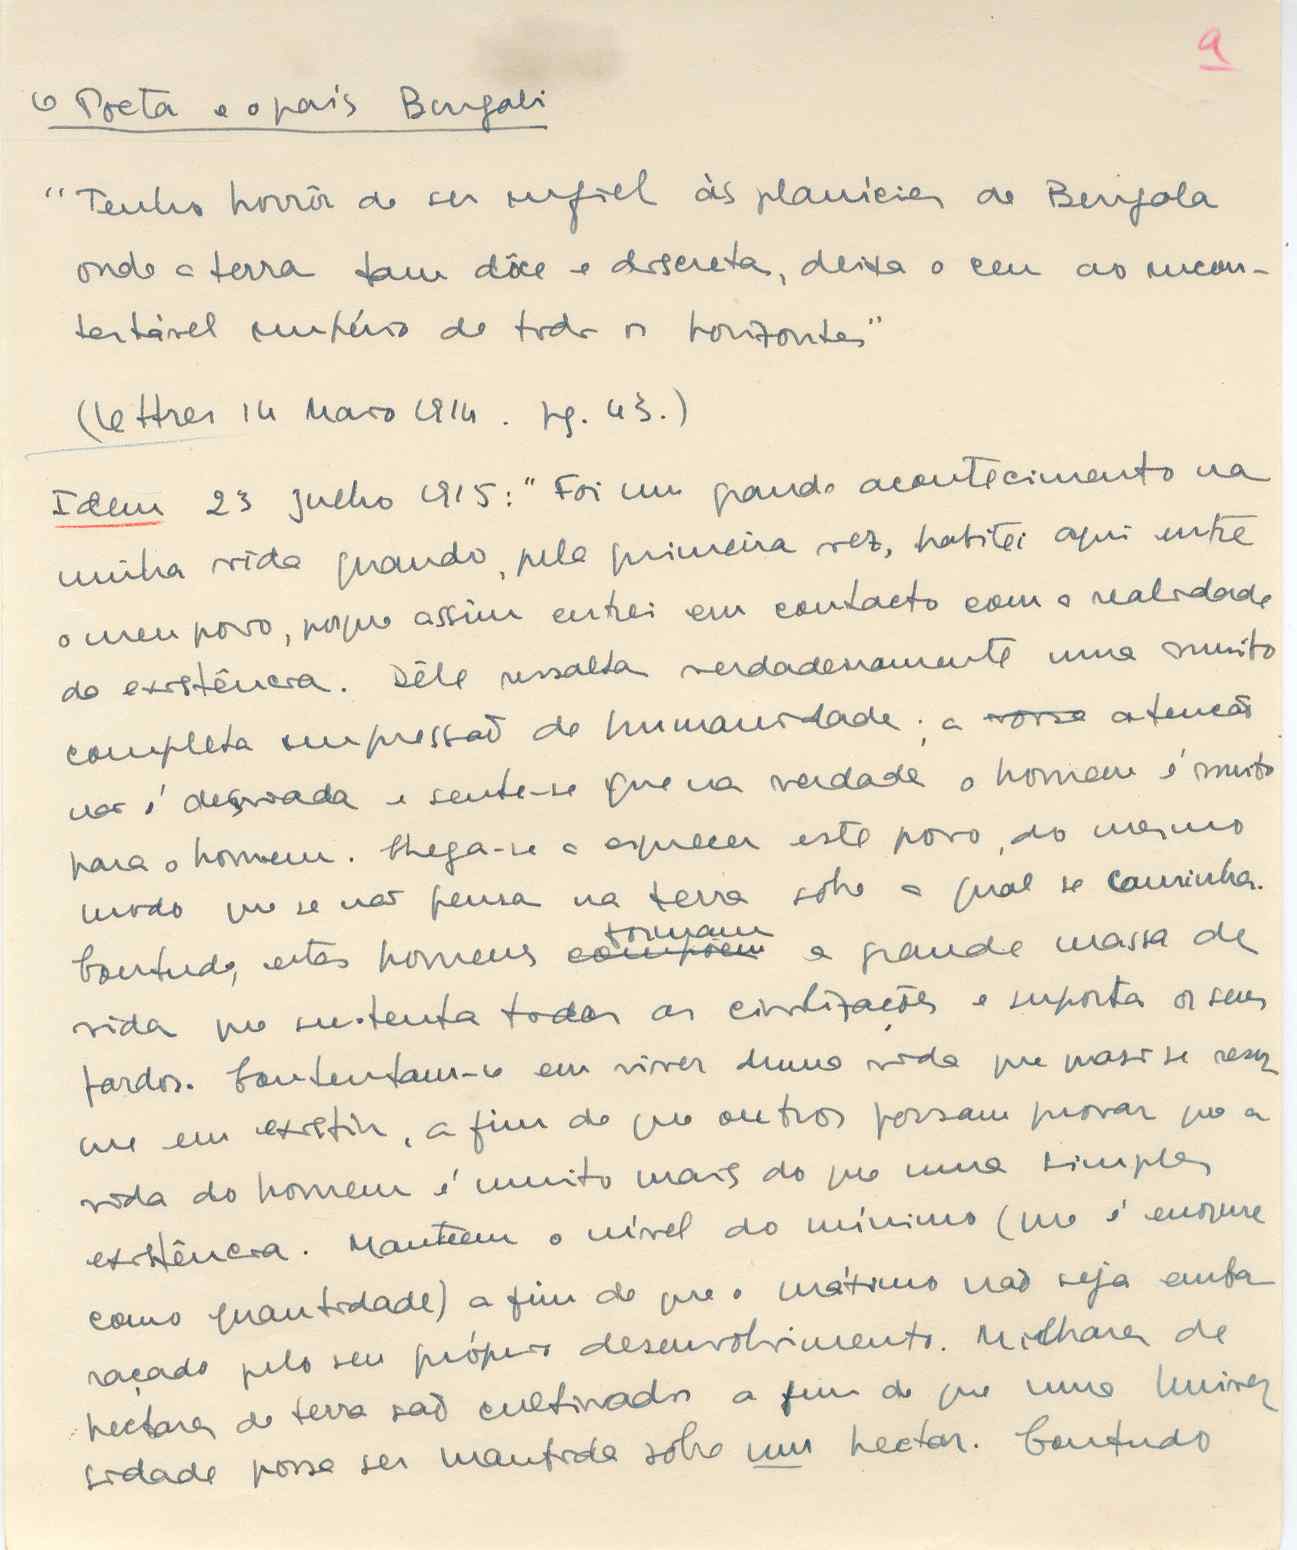 a
O Poeta e o país Bengali
"Tenho horrôr de ser infiel às planícies de Bengala
onde a terra tam dôce e discreta, deixa o ceu ao incon-
testável império de todos os horizontes"
(Lettres 14 Maio 1914. pg. 43.)
Idem 23 Julho 1915: "Foi um grande acontecimento na
minha vida quando, pela primeira vez, habitei aqui entre
o meu povo, porque assim entrei em contacto com a realidade
da existência. Dêle ressalta verdadeiramente uma muito
completa impressão de humanidade; a nossa atenção
não é desviada e sente-se que na verdade o homem é muito
para o homem. Chega-se a esquecer este povo, do mesmo
modo que se não pensa na terra sôbre a qual se caminha.
formam
Contudo, estes homens compõem a grande massa de
vida que sustenta todas as civilizações e suporta os seus
fardos. Contentam-se em viver duma vida que quasi se resu
me em existir, a fim de que outros possam provar que a
vida do homem é muito mais do que uma simples
existência. Mantem o nível do mínimo (que é enorme
como quantidade) a fim de que o máximo não seja emba
raçado pelo seu próprio desenvolvimento. Milhares de
hectares de terra são cultivados a fim de que uma Univer
sidade possa ser mantida sôbre um hectar. Contudo